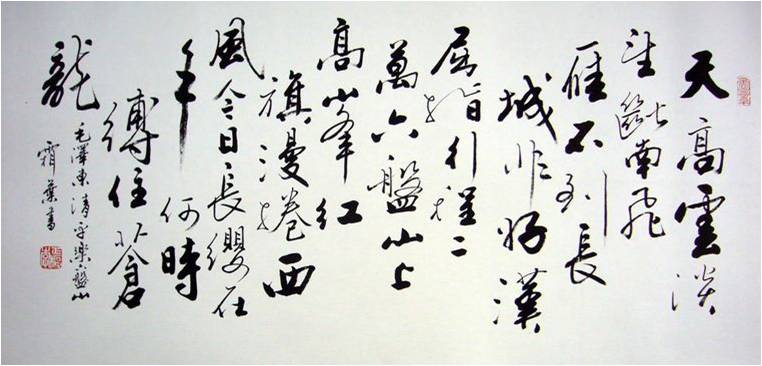 天高雲淡
望斷南飛
雁不到長
城非好漢
屈指行程二
萬六盤山上
高峯紅
旗漫捲西
風今日長纓在
手何時
縛住蒼
龍
毛澤東清平樂六盤山
霜葉書